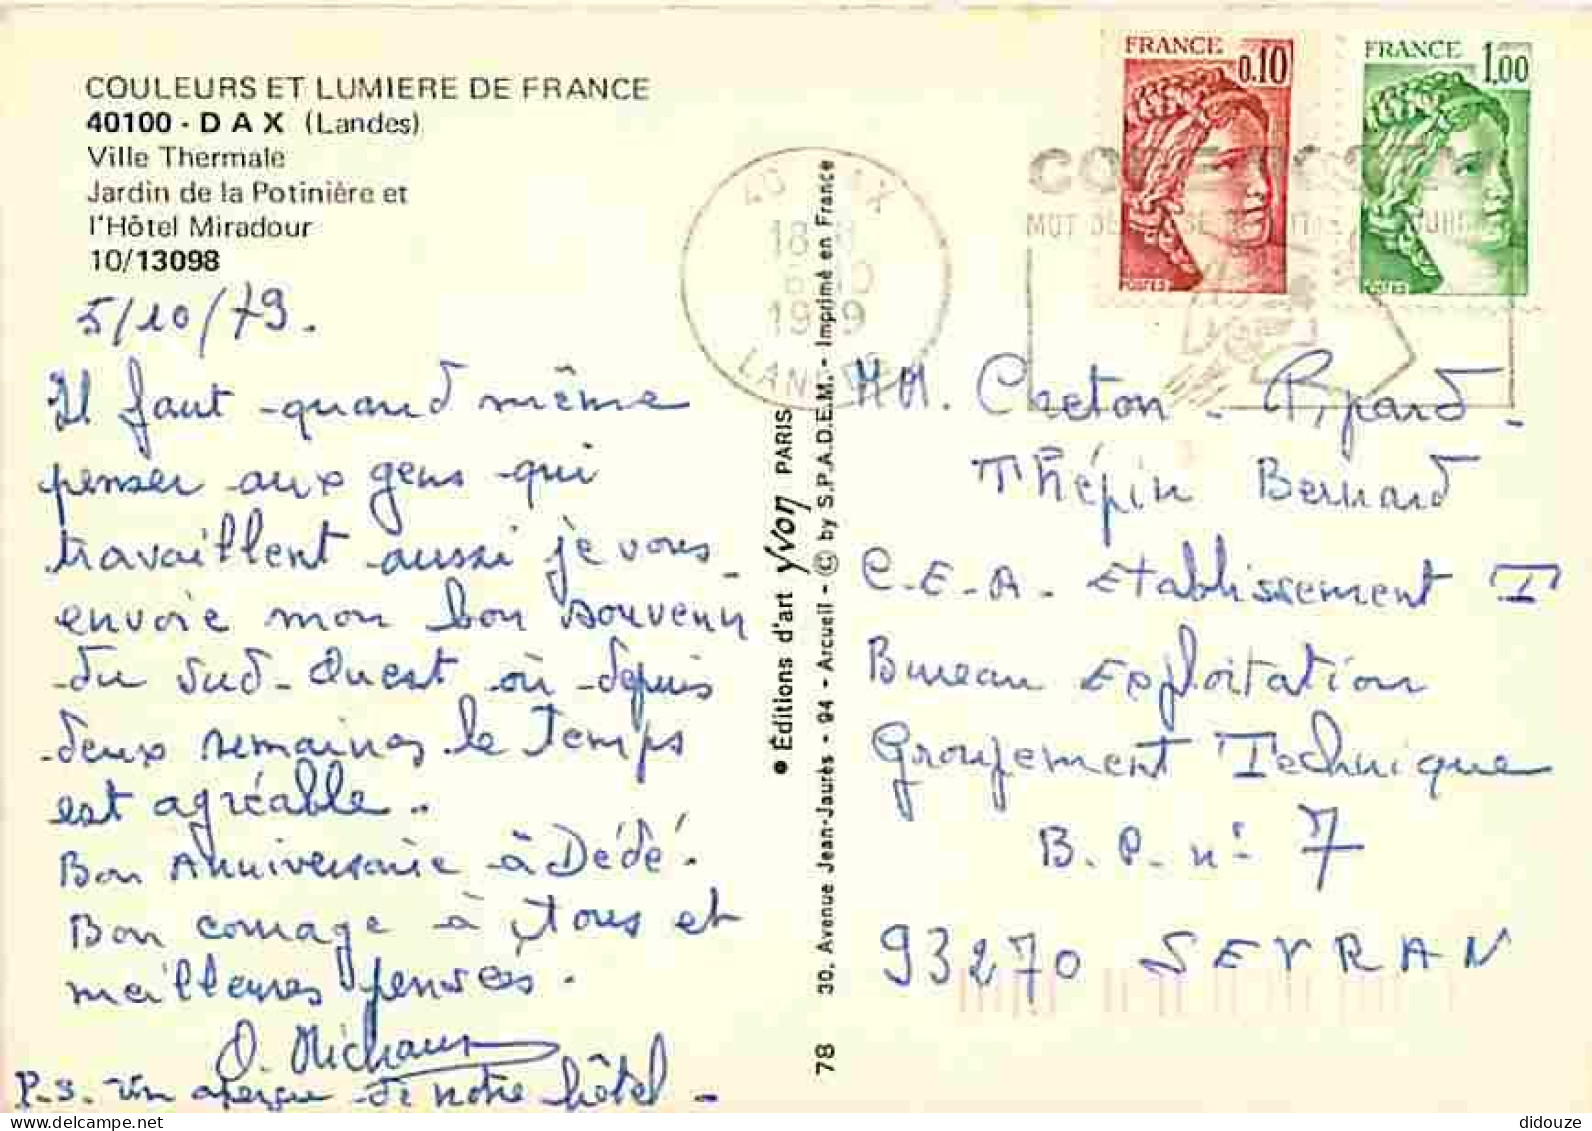 COULEURS ET LUMIERE DE FRANCE
40100 - DAX (Landes)
Ville Thermale
Jardin de la Potinière et
l'Hôtel Miradour
10/13098
5/10/79.
Il faut quand même
penser aux gens qui
travaillent aussi je vous
envoie mon bon souvenir
du Sud-Ouest où depuis
deux semaines le Temps
est agréable..
Bon Anniversaire à Dédé.
Bon courage à Tous et
meilleures pensées.
O. Michaux
P.S. Un aperçu de notre hôtel -
● Éditions d'art Yvon PARIS
30, Avenue Jean-Jaurès - 94 - Arcueil - © by S.P.A.D.E.M. - Imprimé en France
78
FRANCE
0.10
POSTES
FRANCE
1.00
POSTES
40 AX
18
10
19 9
LAN
MM. Creton - Ripard -
Thépin Bernard
C-E-A- Etablissement T
Bureau Exploitation
Groupement Technique
B.P. n° 7
93270 SEVRAN
didouze